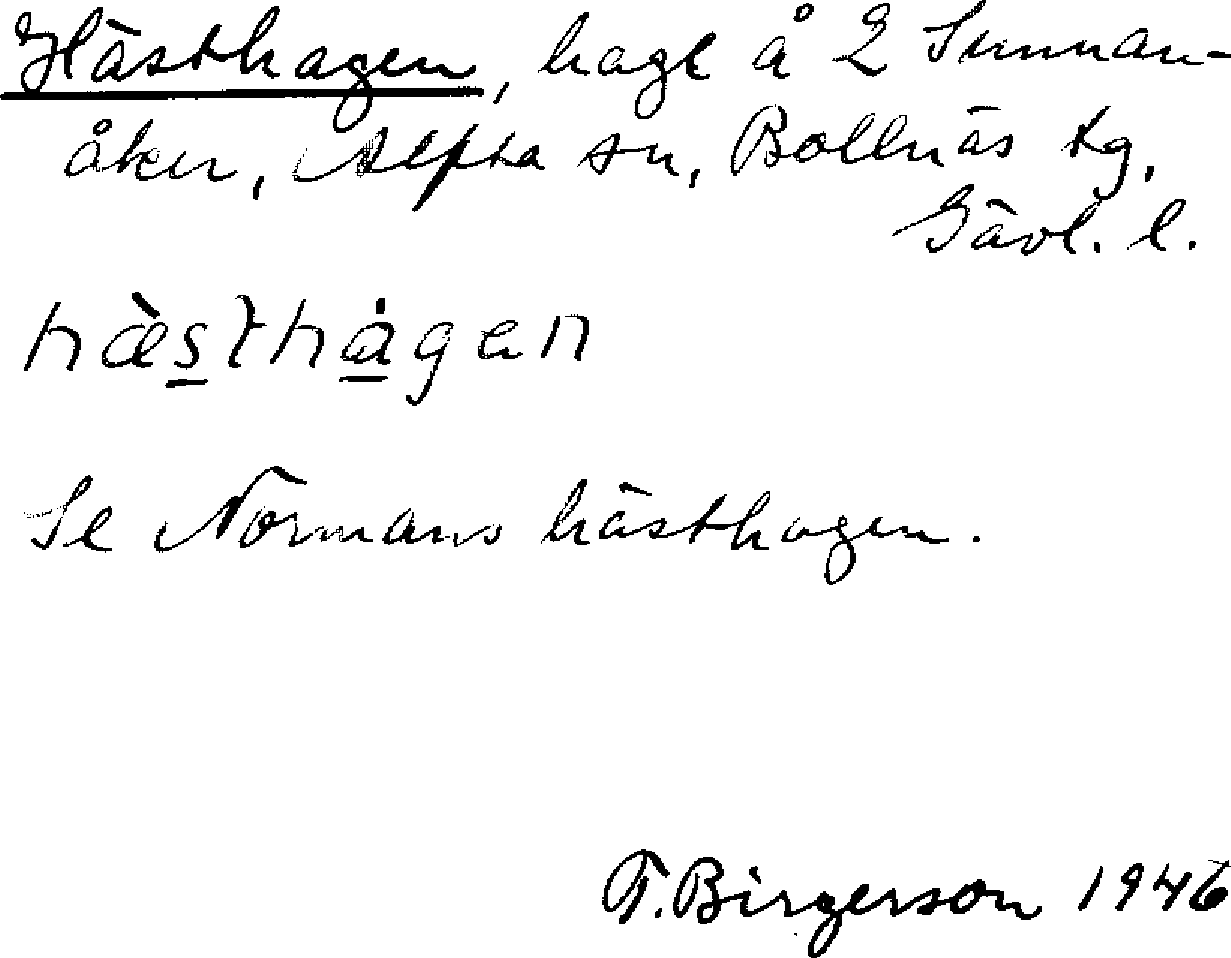 Hästhagen, hage å 2 Sunnan-
åker, Alfta sn, Bollnäs tg,
Gävl. l.
hæ̀s̲thȧ̲gen
Se Normans hästhagen.
T. Birgerson 1946